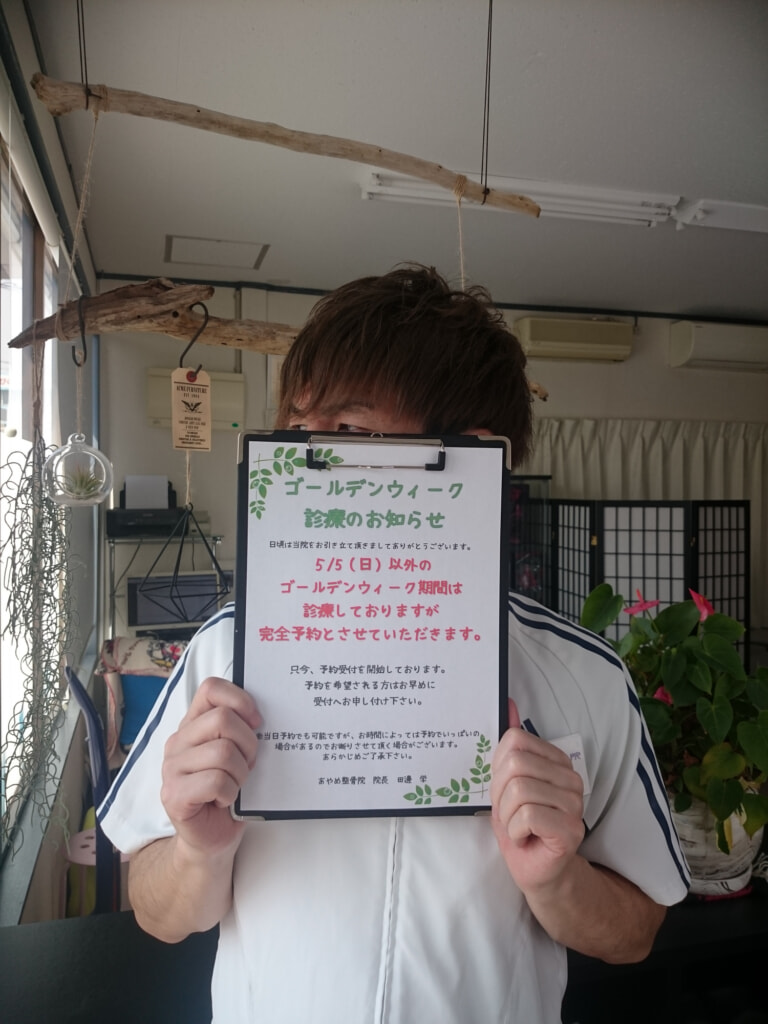 ゴールデンウィーク
診療のお知らせ
日頃は当院をお引き立て頂きましてありがとうございます。
5/5（日）以外の
ゴールデンウィーク期間は
診療しておりますが
完全予約とさせていただきます。
只今、予約受付を開始しております。
予約を希望される方はお早めに
受付へお申し付け下さい。
当日予約でも可能ですが、お時間によっては予約でいっぱいの
場合があるのでお断りさせて頂く場合がございます。
あらかじめご了承下さい。
あやめ整骨院 院長 田邊 学
ACME FURNITURE